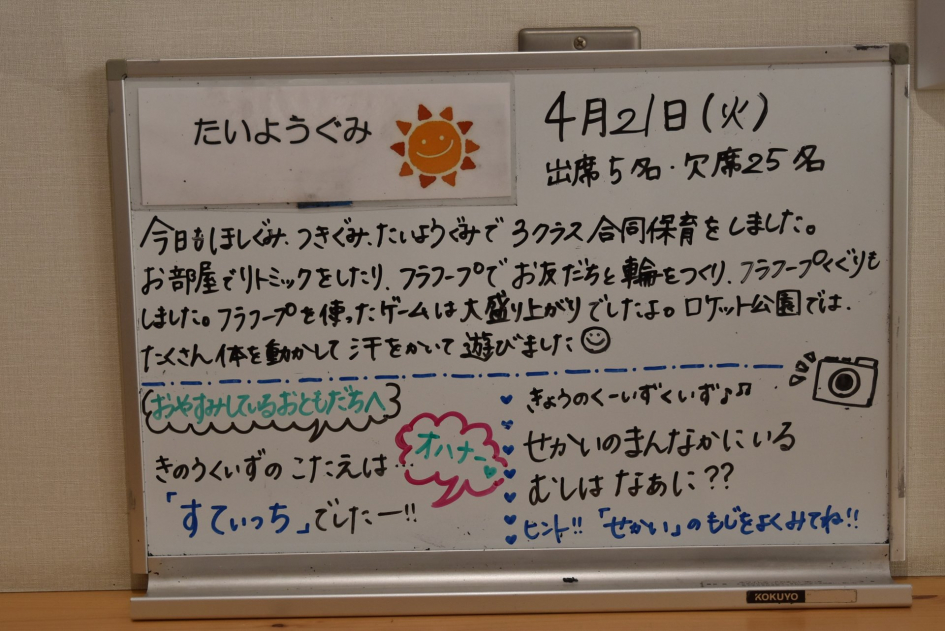 たいようぐみ
4月21日(火)
出席5名・欠席25名
今日もほしぐみ、つきぐみ、たいようぐみで3クラス合同保育をしました。
お部屋でリトミックをしたり、フラフープでお友だちと輪をつくり、フラフープくぐりも
しました。フラフープを使ったゲームは大盛り上がりでしたよ。ロケット公園では、
たくさん体を動かして汗をかいて遊びました
おやすみしているおともだちへ
きのうくいずのこたえは…
「すてぃっち」でしたー!!
オハナー
きょうのくーいずくいず♪♫
せかいのまんなかにいる
むしはなぁに??
ヒント!!「せかい」のもじをよくみてね!!
KOKUYO